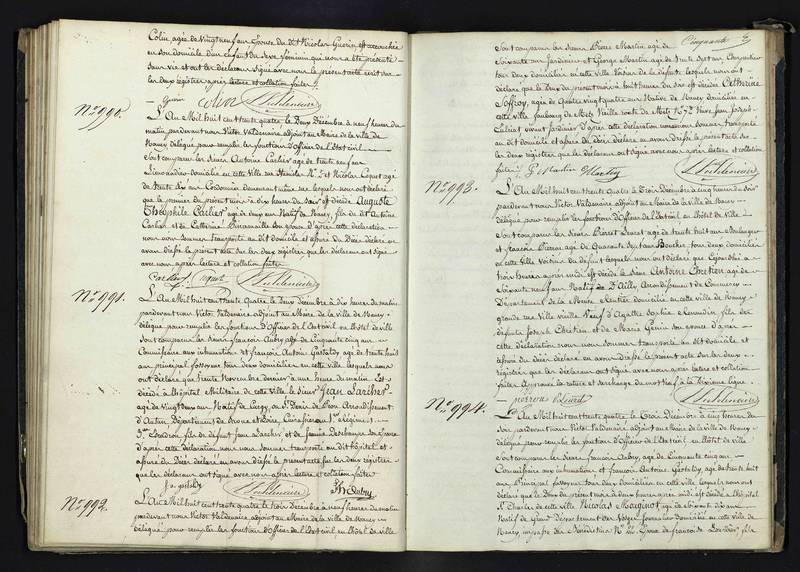 Colin agée de vingt neuf ans Epouse du dit Nicolas Guerin est accouchée
en son domicile d'un enfant du sexe féminin qui nous a été présenté
sans vie et ont les déclarans signé avec nous le présent acte écrit sur
les deux registres après lecture et collation faites
Guerin Colin
No. 990.
L'An Mil huit cent trente quatre le Deux Décembre à neuf heures du
matin pardevant nous Victor Valdenaire adjoint au Maire de la ville de
Nancy délégué pour remplir les fonctions d'Officier de l'Etat civil
Sont comparus les sieurs Antoine Carlier agé de trente neuf ans
Limonadier domicilié en cette Ville rue Stanislas No. et Nicolas Coquet agé
de trente six ans Cordonnier demeurant même rue lesquels nous ont déclaré
que le premier du présent mois à dix heures du soir est décédé Auguste
Théophile Carlier agé de deux ans Natif de Nancy, fils du dit Antoine
Carlier et de Catherine son épouse d'après cette déclaration
nous nous sommes transporté au dit domicile et assuré du Décès déclaré en
avons dressé le présent acte sur les deux registres que les déclarans ont signé
avec nous après lecture et collation faites
Carlier Coquet
No. 991.
L'An Mil huit cent trente quatre le Deux Décembre à dix heures du matin
pardevant nous Victor Valdenaire adjoint au Maire de la ville de Nancy
délégué pour remplir les fonctions d'Officier de l'Etat civil en l'hôtel de ville
Sont comparus les sieurs François Aubry agé de Cinquante cinq ans
Commissaire aux inhumations et François Antoine Gastaldy agé de trente huit
ans principal fossoyeur tous deux domiciliés en cette ville lesquels nous
ont déclaré que trente Novembre dernier à une heure du matin Est
décédé à l'hôpital Militaire de cette Ville le sieur Jean Larcher
agé de vingt deux ans Natif de St. Denis de Arrondissement
d'Autun Département de Saone et Loire, Cuirassier au 1er. Régiment
Escadron, fils de défunt Jean Larcher et de Jeanne Deschamps son épouse
d'après cette déclaration nous nous sommes transporté au dit hôpital et
assuré du Décès déclaré en avons dressé le présent acte sur les deux registres
que les déclarans ont signé avec nous après lecture et collation faites
f. a. gastaldy Aubry
No. 992.
L'An Mil huit cent trente quatre le trois Décembre à neuf heures du matin
pardevant nous Victor Valdenaire adjoint au Maire de la ville de Nancy
délégué pour remplir les fonctions d'Officier de l'Etat civil en l'hôtel de ville
Cinquante
Sont comparus les sieurs Pierre Martin agé de
soixante ans Jardinier et George Martin agé de trente sept ans Charpentier
tous deux domiciliés en cette ville Voisins de la défunte lesquels nous ont
déclaré que le Deux du présent mois à huit heures du soir est décédée Catherine
Joffroy, agée de Quatre vingt quatre ans Native de Nancy domiciliée en
cette ville faubourg de Metz Vieille route de Metz No. 52 Veuve Jean Joseph
vivant Jardinier d'après cette déclaration nous nous sommes transporté
au dit domicile et assuré du Décès déclaré en avons dressé le présent acte sur
les deux registres que les déclarans ont signé avec nous après lecture et collation
faites P. Martin Martin
No. 993.
L'An Mil huit cent trente Quatre le Trois Décembre à cinq heures du soir
pardevant nous Victor Valdenaire adjoint au Maire de la ville de Nancy
délégué pour remplir les fonctions d'Officier de l'Etat civil en l'hôtel de Ville
Sont comparus les sieurs agé de trente huit ans Boulanger
et François Pierron agé de Quarante sept ans Boucher tous deux domiciliés
en cette Ville Voisins du défunt lesquels nous ont déclaré que Cejourd'hui à
trois heures après midi est décédé le Sieur Antoine Chretien agé de
Soixante neuf ans Natif de D'Ailly Arrondissement de Commercy
Département de la Meuse Rentier domicilié en cette ville de Nancy
grande rue Ville vieille Veuf d'Agathe Sophie fils des
défunts Joseph Chrétien et de Marie Genin son épouse d'après
cette déclaration nous nous sommes transporté au dit domicile et
assuré du Décès déclaré en avons dressé le présent acte sur les deux
registres que les déclarans ont signé avec nous après lecture et collation
faites Approuvé la rature et surcharge du mot Natif à la dixième ligne
pierron
No. 994.
L'An Mil huit cent trente quatre le Trois Décembre à cinq heures du
soir pardevant nous Victor Valdenaire adjoint au Maire de la ville de Nancy
délégué pour remplir les fonctions d'Officier de l'Etat civil en l'hôtel de ville
sont comparus les sieurs François Aubry, agé de Cinquante cinq ans
Commissaire aux inhumations et François Antoine Gastaldy agé de trente huit
ans Principal fossoyeur tous deux domiciliés en cette ville, lesquels nous ont
déclaré que le Deux du présent mois à deux heures après midi est décédé à l'hôpital
St. Charles de cette ville Nicolas Maginot agé de soixante dix ans
Natif de Grand Département des Vosges domicilié en cette ville de
Nancy, impasse des Bénédictins No. Epoux de Françoise fils